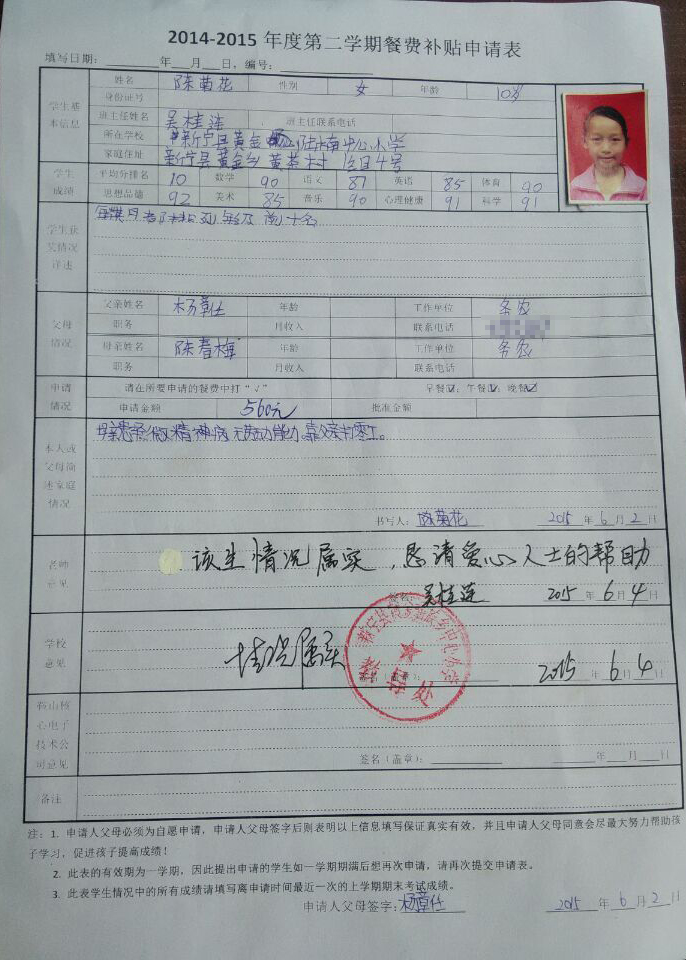 2014-2015 年度第二学期餐费补贴申请表
填写日期：年 月 日，编号：
学生基本信息
姓名 陈菊花 性别 女 年龄 10岁
身份证号
班主任姓名 吴桂莲 班主任联系电话
所在学校 新宁县黄金 中心小学
家庭住址 新宁县黄金乡黄 村 组4号
学生成绩
平均分排名 10 数学 90 语文 87 英语 85 体育 90
思想品德 92 美术 85 音乐 90 心理健康 91 科学 91
学生获奖情况详述
每 月考 前十名
父母情况
父亲姓名 杨章任 年龄 工作单位 务农
职务 月收入 联系电话
母亲姓名 陈春梅 年龄 工作单位 务农
职务 月收入 联系电话
申请情况
请在所要申请的餐费中打“√” 早餐☑；午餐☑；晚餐☑
申请金额 560元 批准金额
本人或父母简述家庭情况
母亲患轻微精神病无劳动能力，靠父亲打零工。
书写人： 菊花 2015 年 6 月 2 日
老师意见
该生情况属实，恳请爱心人士的帮助
吴桂莲 2015 年 6 月 4 日
学校意见
情况属实
教导处
2015 年 6 月 4 日
鞍山核心电子技术公司意见
签名（盖章）： 年 月 日
备注
注：1. 申请人父母必须为自愿申请，申请人父母签字后则表明以上信息填写保证真实有效，并且申请人父母同意会尽最大努力帮助孩
子学习，促进孩子提高成绩！
2. 此表的有效期为一学期，因此提出申请的学生如一学期期满后想再次申请，请再次提交申请表。
3. 此表学生情况中的所有成绩请填写离申请时间最近一次的上学期期末考试成绩。
申请人父母签字：杨章任 2015 年 6 月 2 日